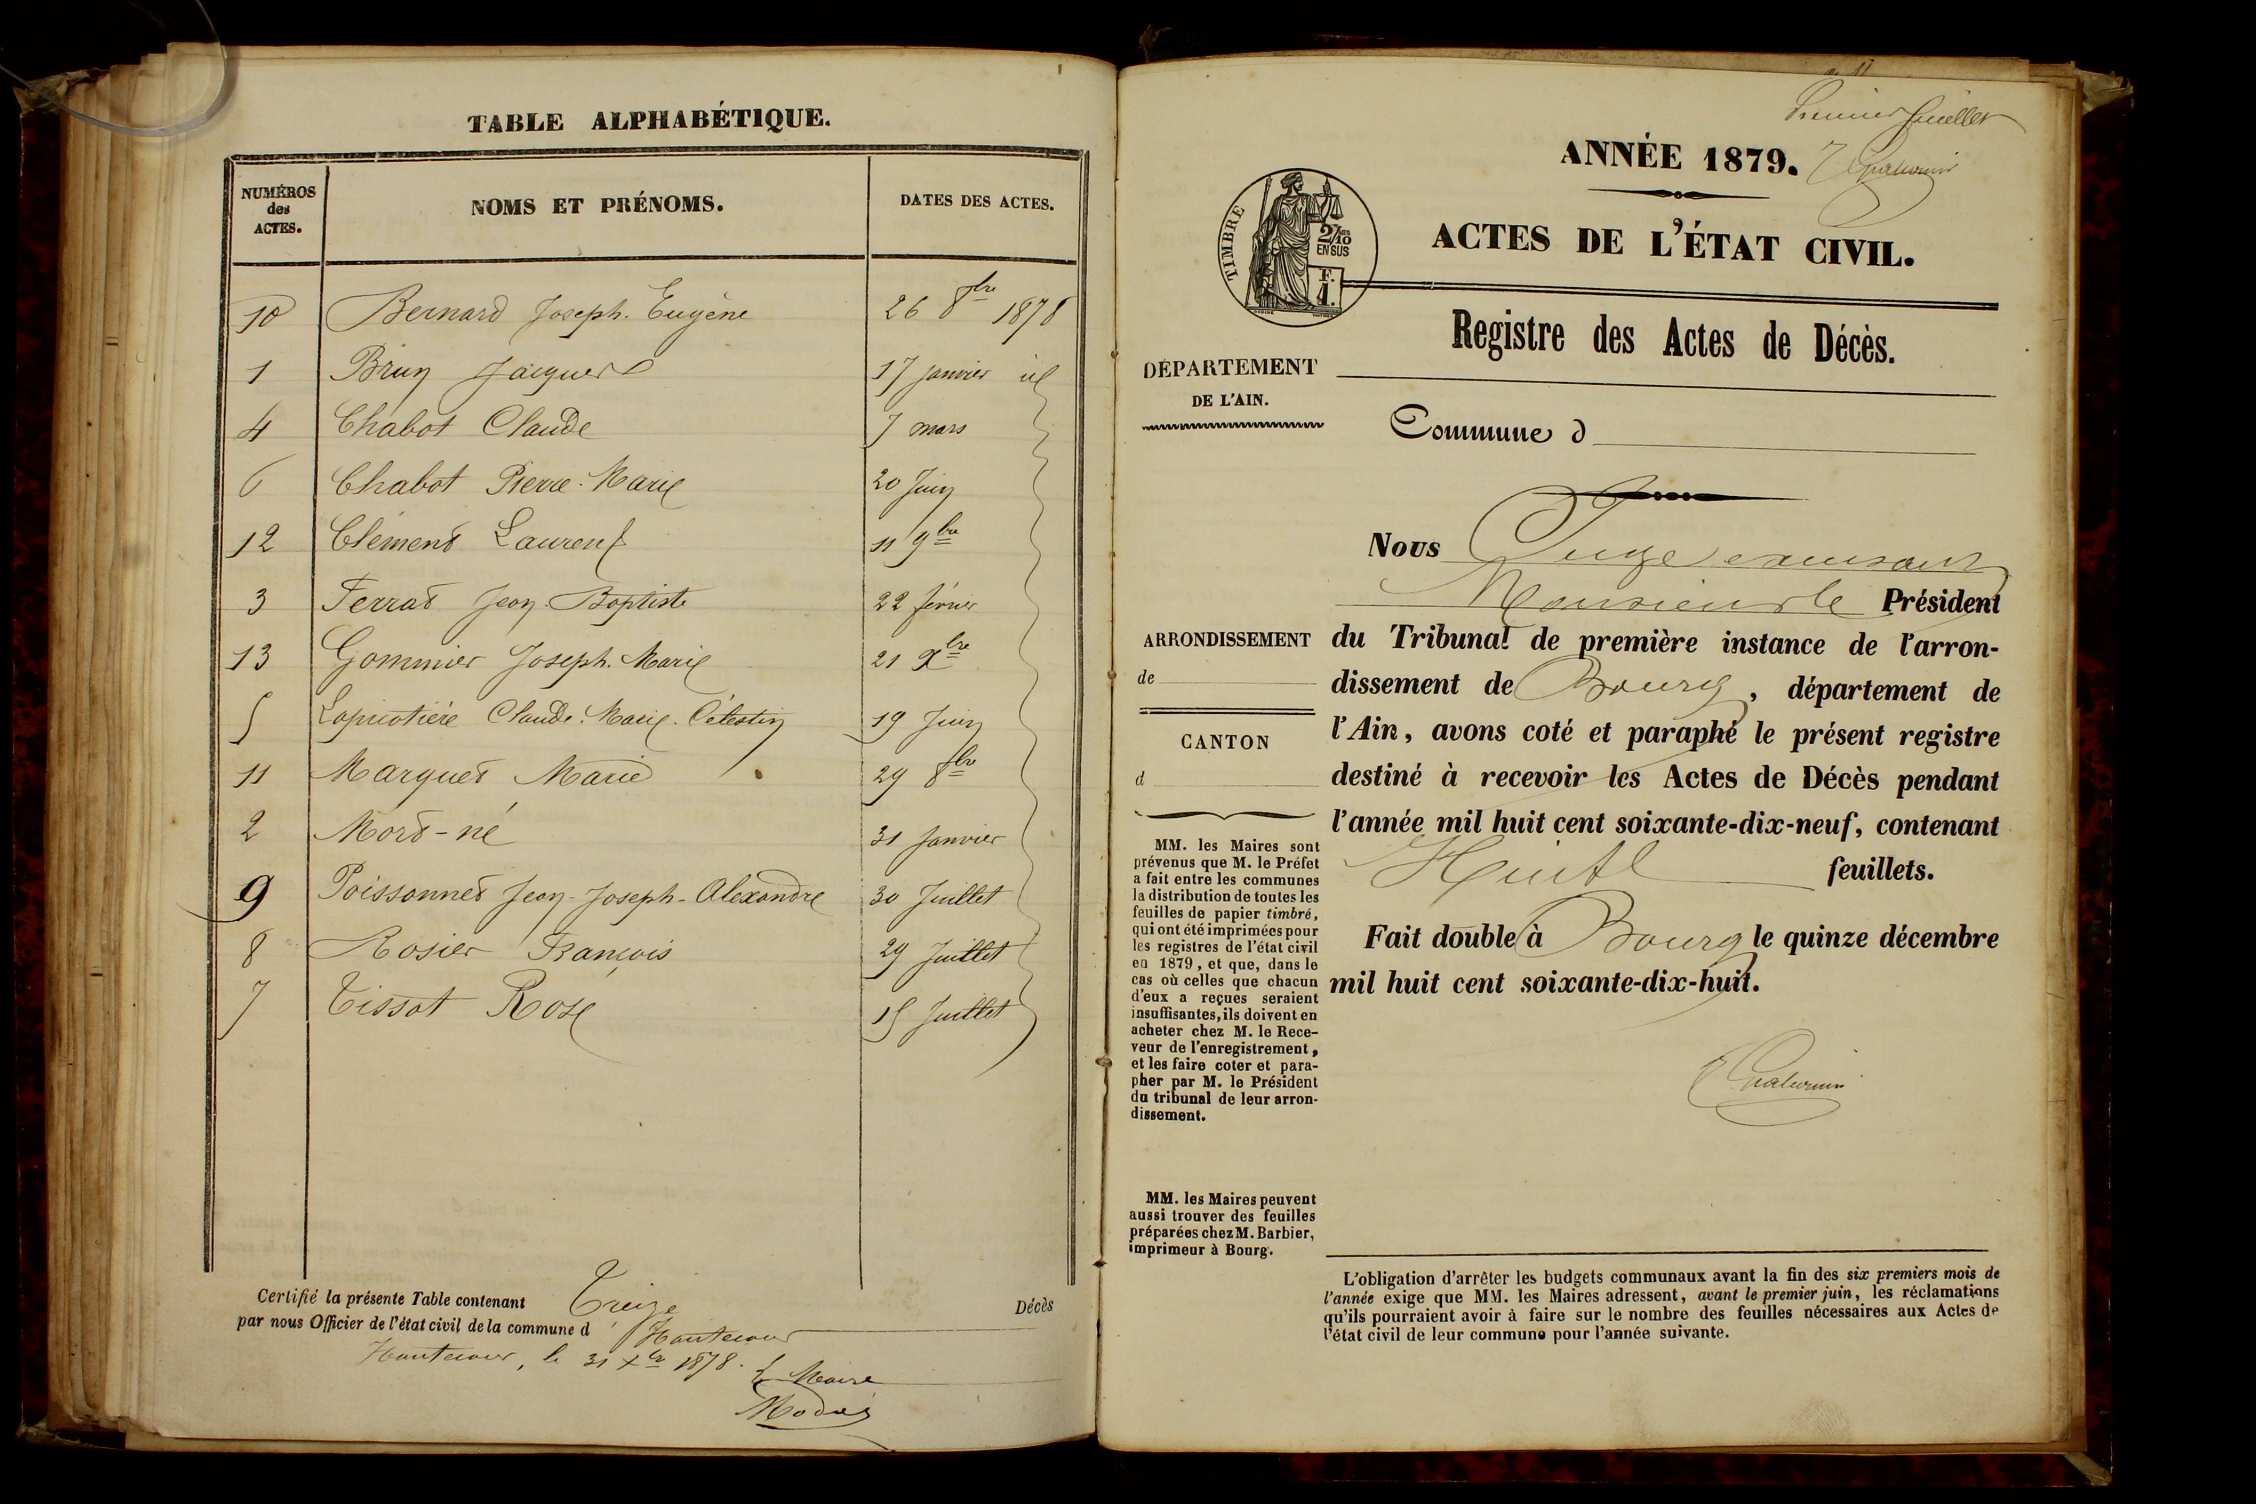 TABLE ALPHABÉTIQUE.
NUMÉROS des ACTES. NOMS ET PRÉNOMS. DATES DES ACTES.
10 Bernard Joseph-Eugène 26 8bre 1878
1 Brun Jacques 17 janvier id
4 Chabot Claude 7 mars
6 Chabot Pierre-Marie 20 Juin
12 Clément Laurent 11 9bre
3 Ferrat Jean-Baptiste 22 février
13 Gommier Joseph-Marie 21 Xbre
5 Claude-Marie-Célestin 19 Juin
11 Marguet Marie 29 8bre
2 Mort-né 31 Janvier
9 Poissonnet Jean-Joseph-Alexandre 30 Juillet
8 Rosier François 29 Juillet
7 Tissot Rose 15 Juillet
Certifié la présente Table contenant Treize Décès
par nous Officier de l'état civil de la commune d Hautecour
Hautecour, le 31 Xbre 1878. Le Maire
Premier feuillet
ANNÉE 1879.
ACTES DE L'ÉTAT CIVIL.
TIMBRE
2/10
EN SUS
F.
1.
Registre des Actes de Décès.
DÉPARTEMENT
DE L'AIN.
Commune d
Nous Juge
Monsieur le Président
du Tribunal de première instance de l'arron-
dissement de Bourg, département de
l'Ain, avons coté et paraphé le présent registre
destiné à recevoir les Actes de Décès pendant
l'année mil huit cent soixante-dix-neuf, contenant
Huit feuillets.
Fait double à Bourg le quinze décembre
mil huit cent soixante-dix-huit.
ARRONDISSEMENT
de
CANTON
d
MM. les Maires sont
prévenus que M. le Préfet
a fait entre les communes
la distribution de toutes les
feuilles de papier timbré,
qui ont été imprimées pour
les registres de l'état civil
en 1879, et que, dans le
cas où celles que chacun
d'eux a reçues seraient
insuffisantes, ils doivent en
acheter chez M. le Rece-
veur de l'enregistrement,
et les faire coter et para-
pher par M. le Président
du tribunal de leur arron-
dissement.
MM. les Maires peuvent
aussi trouver des feuilles
préparées chez M. Barbier,
imprimeur à Bourg.
L'obligation d'arrêter les budgets communaux avant la fin des six premiers mois de
l'année exige que MM. les Maires adressent, avant le premier juin, les réclamations
qu'ils pourraient avoir à faire sur le nombre des feuilles nécessaires aux Actes de
l'état civil de leur commune pour l'année suivante.